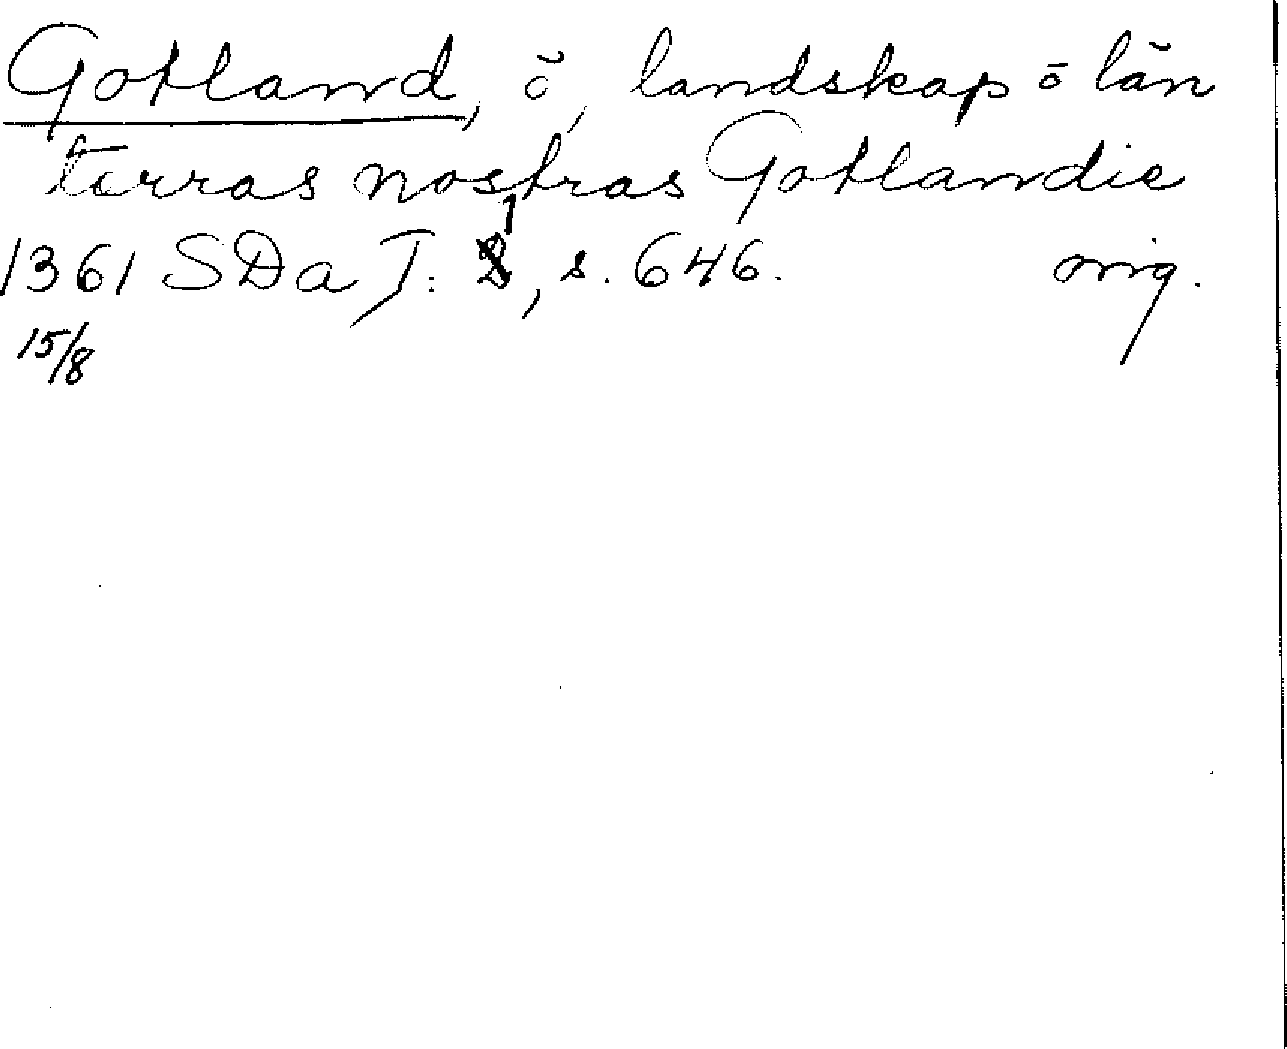 Gotland, ö, landskap o län
terras nostras Gotlandie
1361 SDa I: 1, s. 646. orig.
15/8